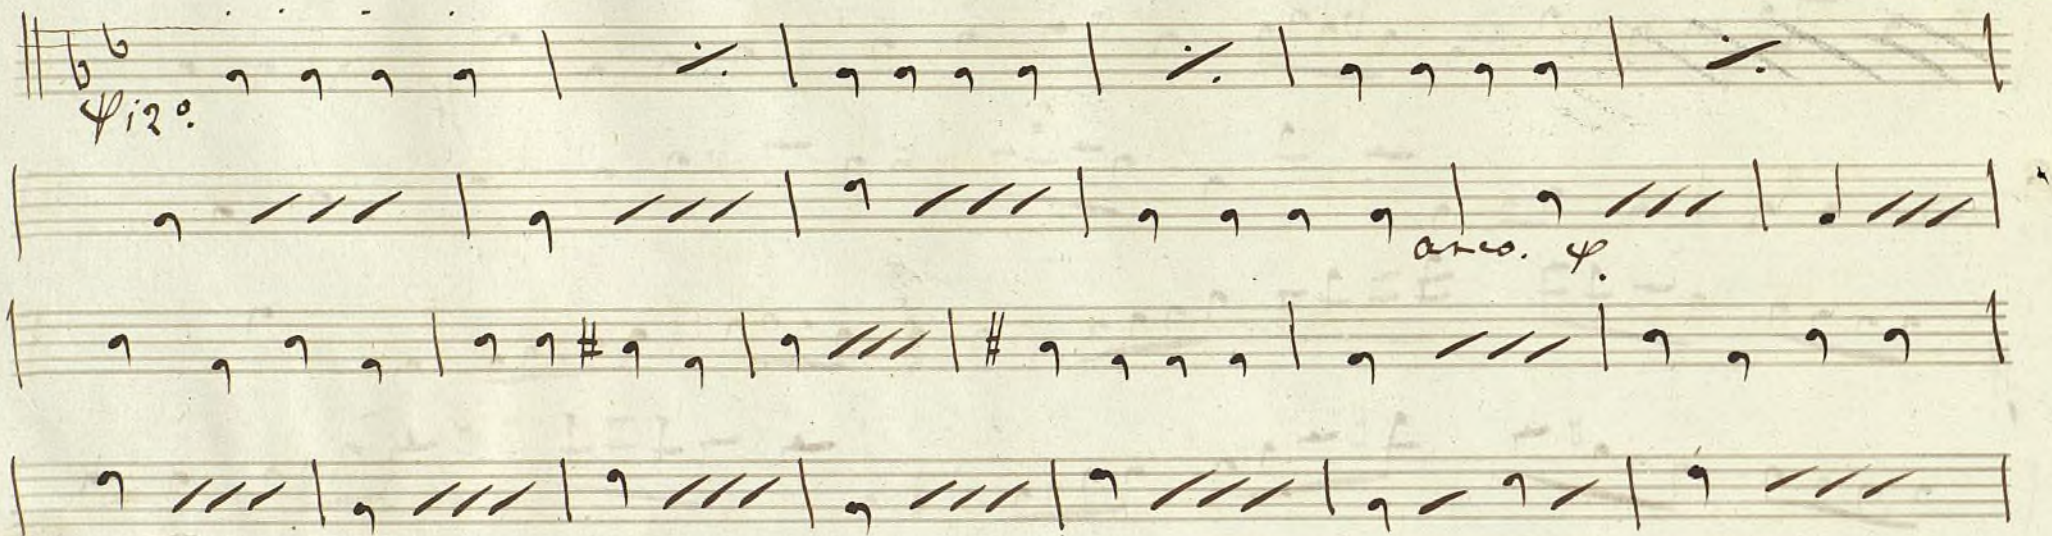 Pizo.
arco. P.